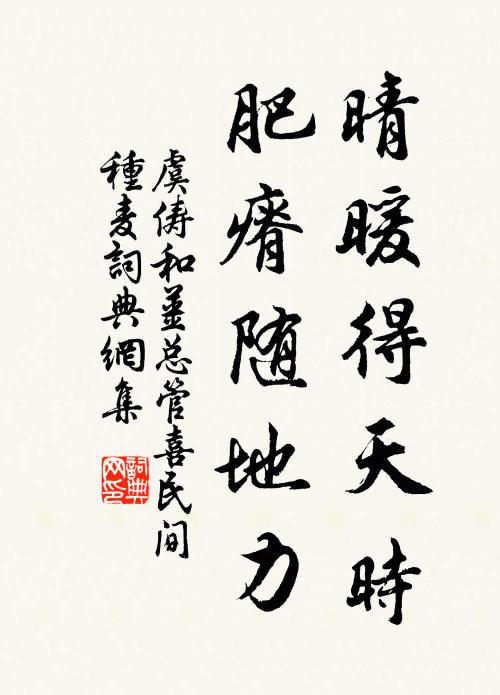 晴暖得天時
肥瘠随地力
虞俦和姜总管喜民间
種麦詞典網集
詞典
网印